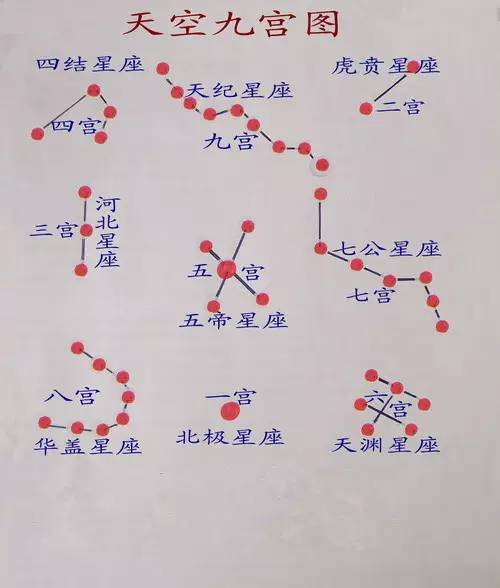 天空九宫图
四结星座
四宫
天纪星座
九宫
虎贲星座
二宫
三宫
河北星座
五宫
五帝星座
七公星座
七宫
八宫
华盖星座
一宫
北极星座
六宫
天渊星座